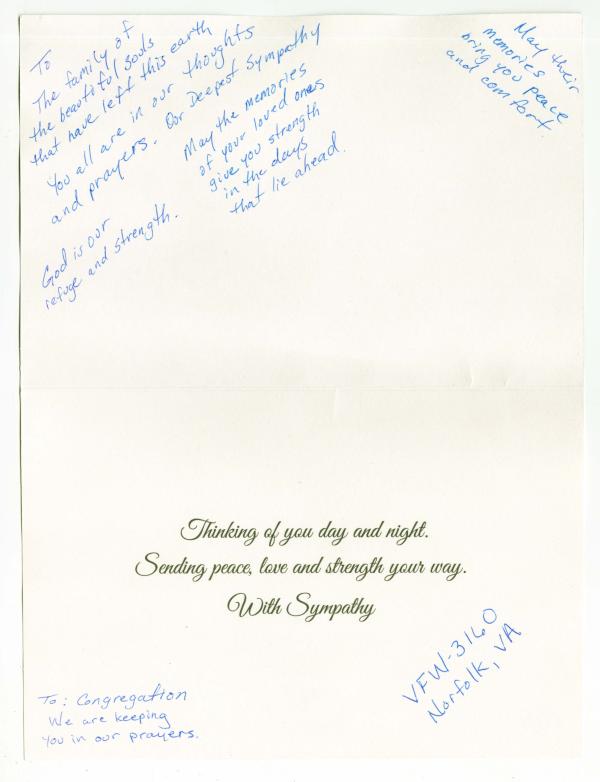 To
The family of
the beautiful souls
that have left this earth
You all are in our thoughts
and prayers. Our Deepest Sympathy
May the memories
of your loved ones
give you strength
in the days
that lie ahead.
God is our
refuge and strength.
May their
memories
bring you peace
and comfort
Thinking of you day and night.
Sending peace, love and strength your way.
With Sympathy
VFW-3160
Norfolk, VA
To: Congregation
We are keeping
you in our prayers.